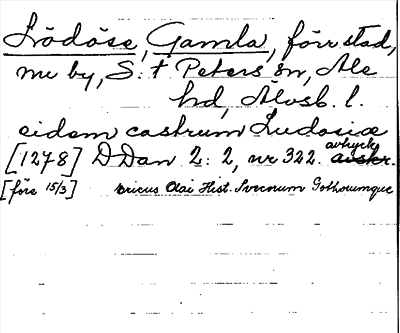 Lödöse, Gamla, förr stad,
nu by, S:t Peters sn, Ale
hd, Älvsb. l.
eidem castrum Ludosiæ
[1278] DDan 2:2, nr 322. avtryck
[före 15/3] Ericus Olai Hist. Svecorum Gothorumque